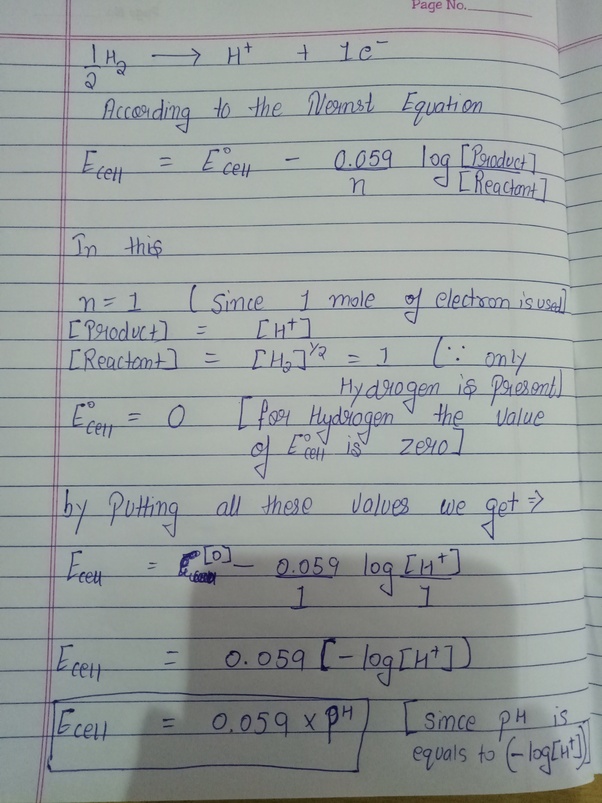 Page No.
1/2 H₂ ⟶ H⁺ + 1e⁻
According to the Nernst Equation
E_cell = E°_cell − 0.059/n log [Product]/[Reactant]
In this
n = 1 ( Since 1 mole of electron is used]
[Product] = [H⁺]
[Reactant] = [H₂]^1/2 = 1 (∵ only
Hydrogen is Present)
E°_cell = 0 [for Hydrogen the value
of E°_cell is zero]
by Putting all these values we get ⇒
E_cell = [0] − 0.059/1 log [H⁺]/1
E_cell = 0.059 [−log[H⁺])
E_cell = 0.059 × P^H [Since pH is
equals to (−log[H⁺])]